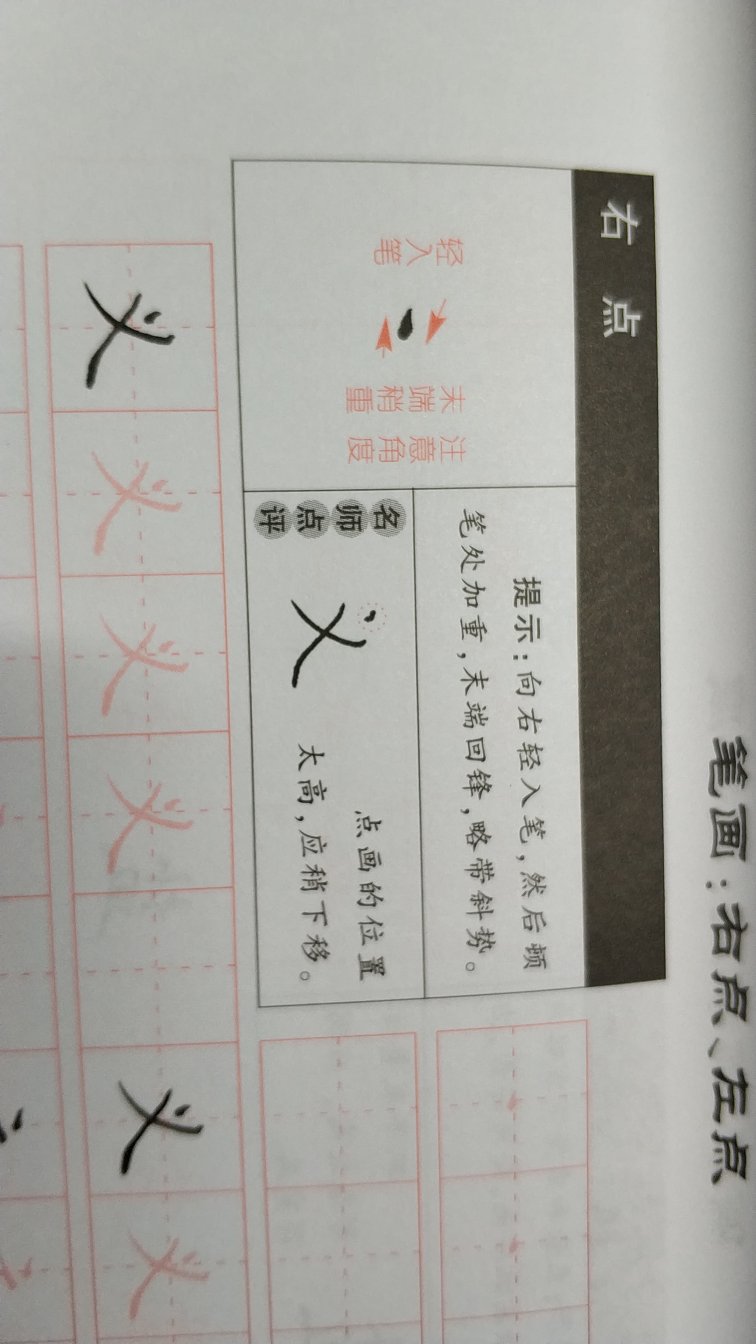 笔画：右点、左点
右点
轻入笔
末端稍重
注意角度
提示：向右轻入笔，然后顿
笔处加重，末端回锋，略带斜势。
名师点评
义
点画的位置
太高，应稍下移。
义 义 义 义 义 义